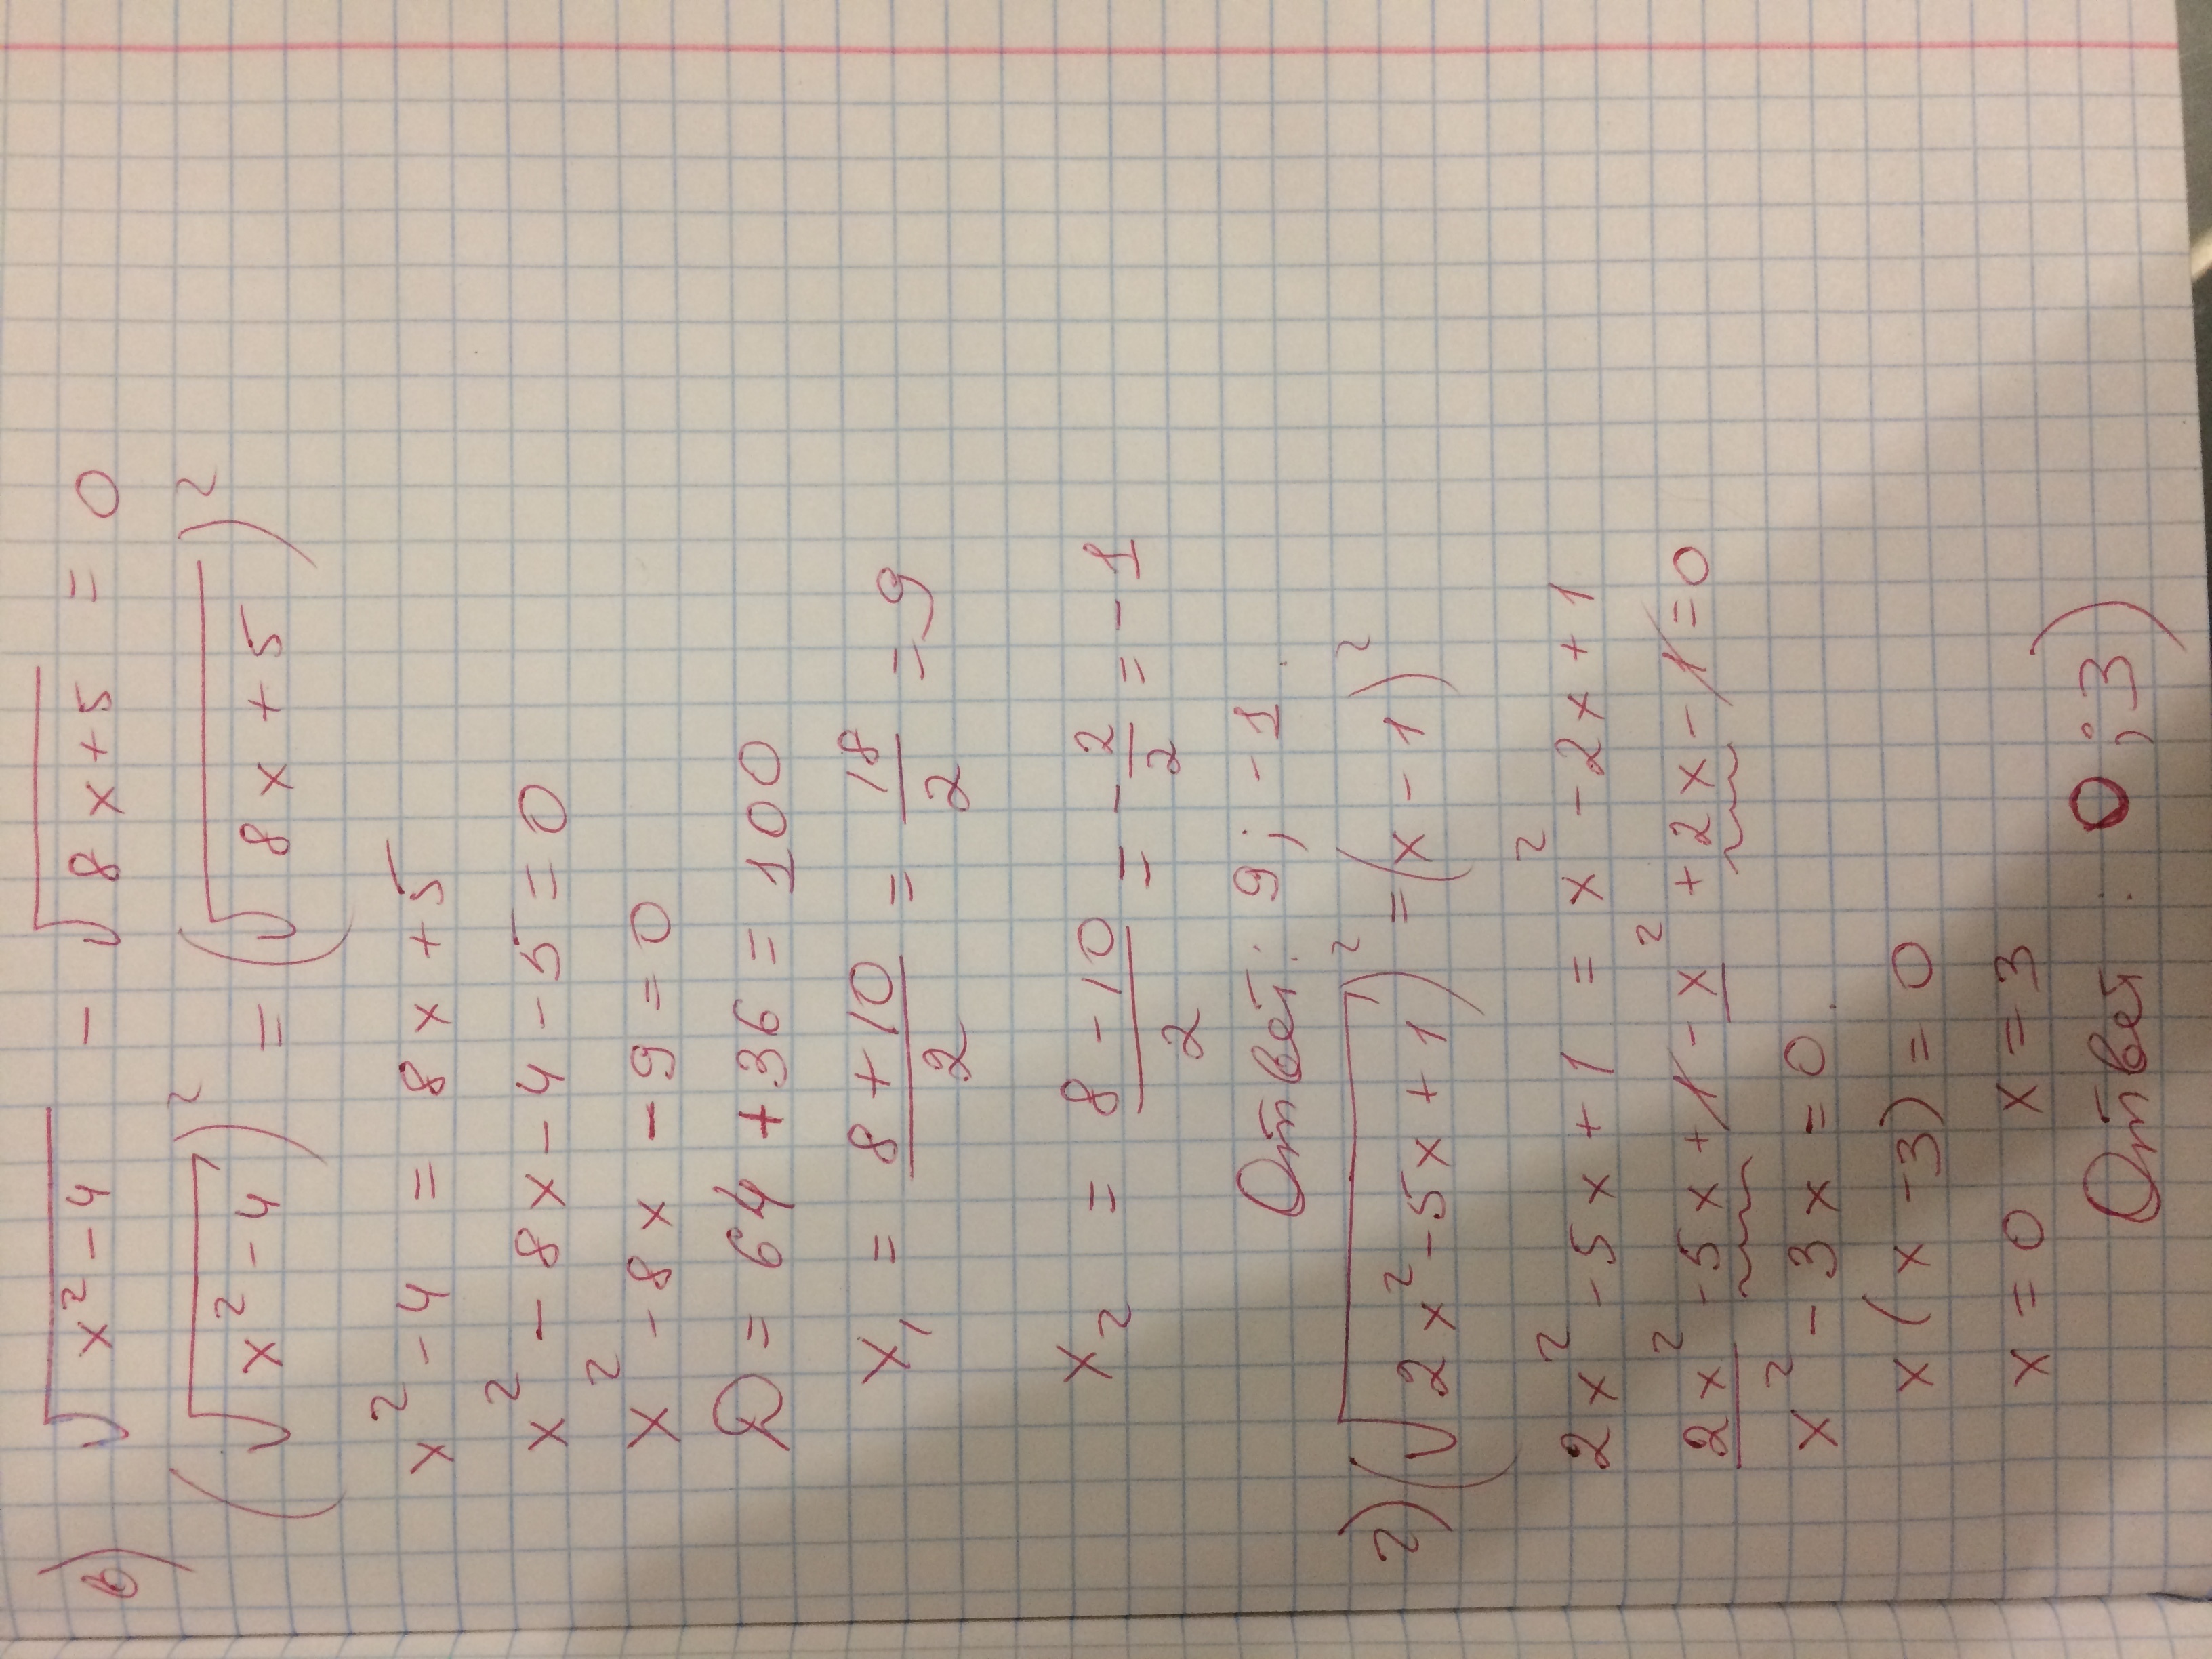 в) √(x²-4) - √(8x+5) = 0
(√(x²-4))² = (√(8x+5))²
x²-4 = 8x+5
x²-8x-4-5=0
x²-8x-9=0
D=64+36=100
x₁ = (8+10)/2 = 18/2 = 9
x₂ = (8-10)/2 = -2/2 = -1
Ответ: 9; -1
г) (√(2x²-5x+1))² = (x-1)²
2x²-5x+1 = x²-2x+1
2x²-5x+1-x²+2x-1=0
x²-3x=0
x(x-3)=0
x=0 x=3
Ответ: 0;3)